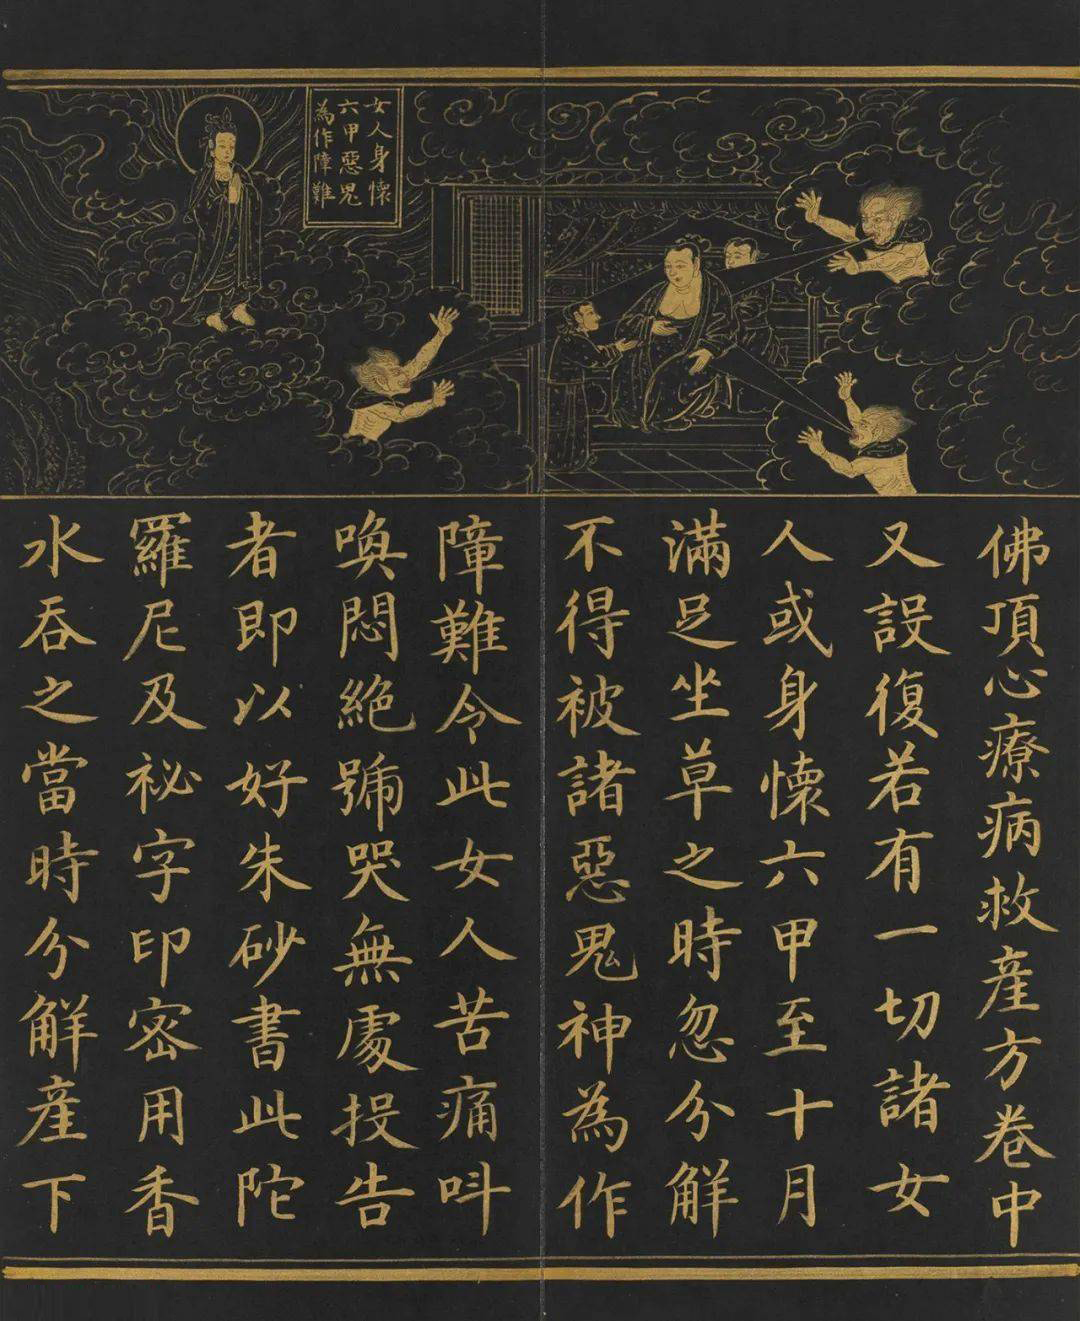 女人身懷
六甲惡鬼
為作障難
佛頂心療病救産方卷中
又設復若有一切諸女
人或身懷六甲至十月
滿足坐草之時忽分解
不得被諸惡鬼神為作
障難令此女人苦痛叫
喚悶絕號哭無處投告
者即以好朱砂書此陀
羅尼及祕字印密用香
水吞之當時分解産下